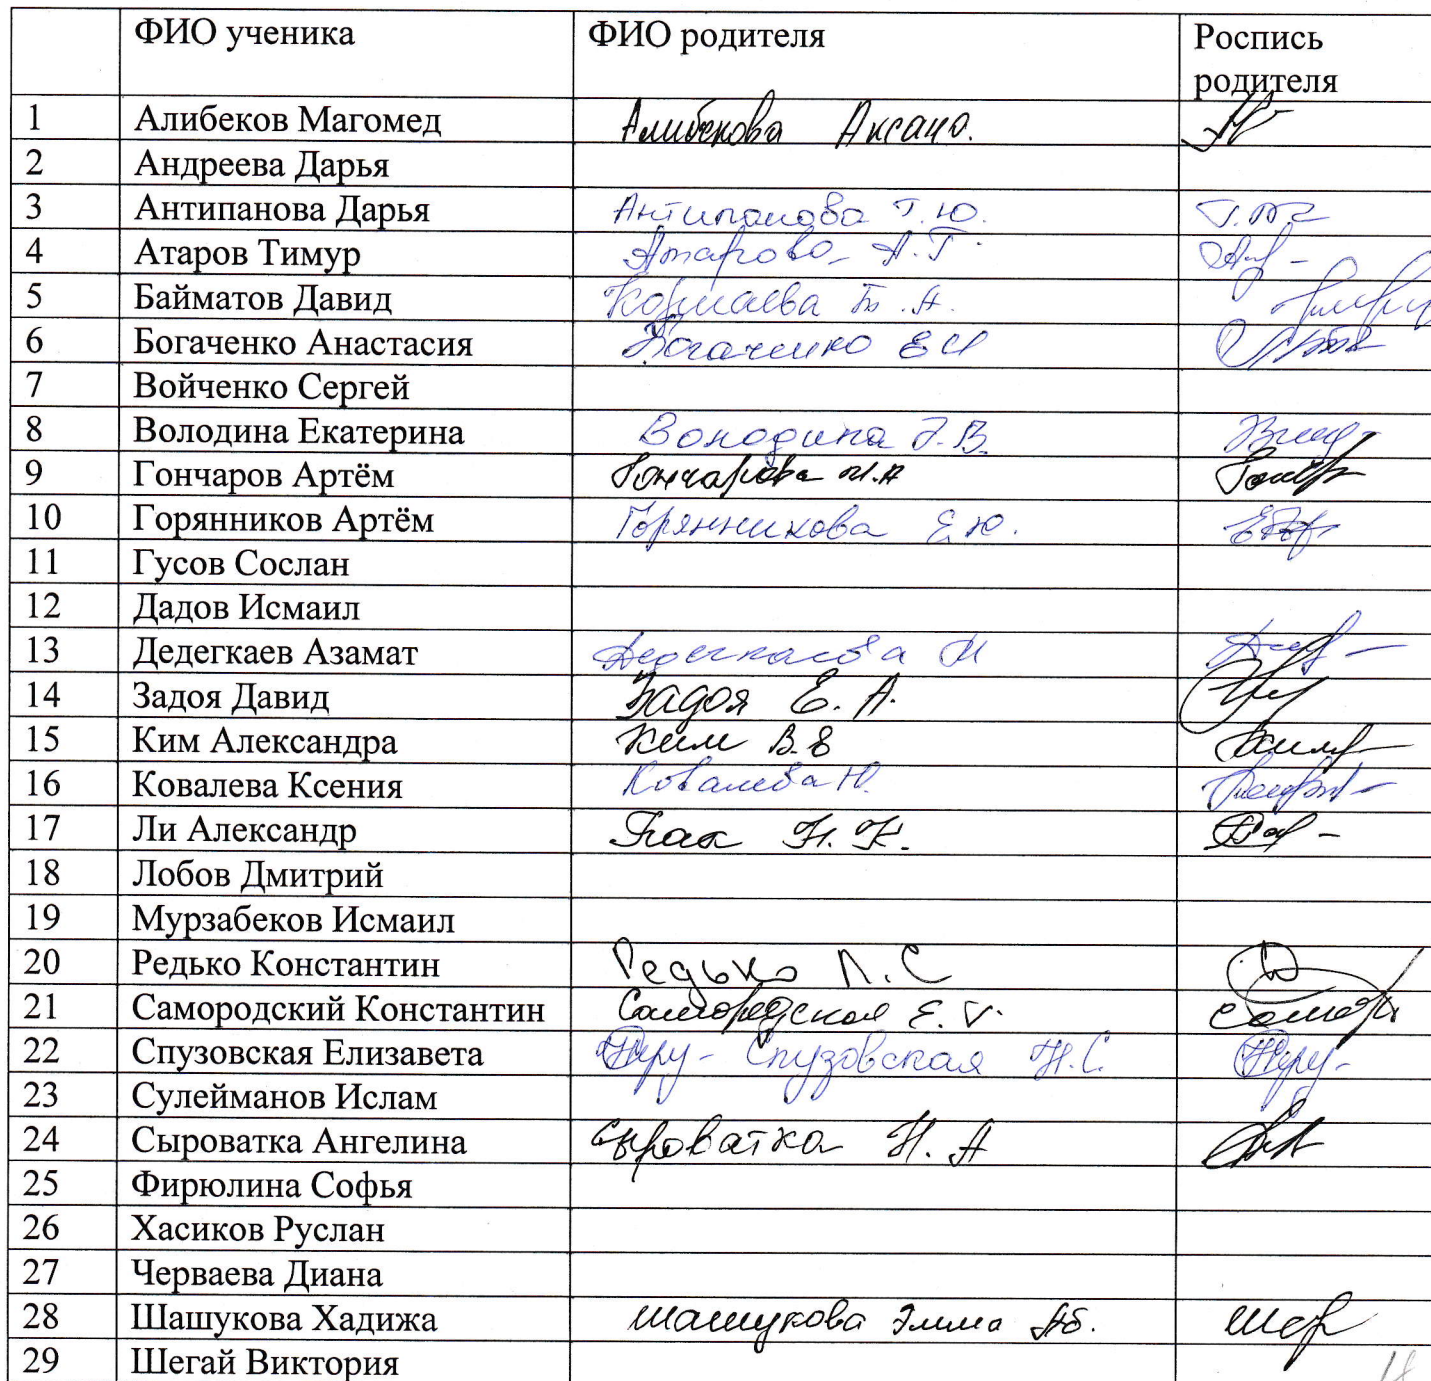 ФИО ученика ФИО родителя Роспись родителя
1 Алибеков Магомед Алибекова Аксана.
2 Андреева Дарья
3 Антипанова Дарья Антипанова Т.Ю.
4 Атаров Тимур Атарова А.Г.
5 Байматов Давид Б.А.
6 Богаченко Анастасия Богаченко Е И
7 Войченко Сергей
8 Володина Екатерина Володина Э.В.
9 Гончаров Артём Гончарова М.А
10 Горянников Артём Горянникова Е.Ю.
11 Гусов Сослан
12 Дадов Исмаил
13 Дедегкаев Азамат Дедегкаева
14 Задоя Давид Задоя Е. А.
15 Ким Александра Ким В.Е
16 Ковалева Ксения Ковалева Ю.
17 Ли Александр Пак Н. К.
18 Лобов Дмитрий
19 Мурзабеков Исмаил
20 Редько Константин Редько Л.С
21 Самородский Константин Самородская Е. V.
22 Спузовская Елизавета Спузовская Н.С.
23 Сулейманов Ислам
24 Сыроватка Ангелина Сыроватка Н. А
25 Фирюлина Софья
26 Хасиков Руслан
27 Черваева Диана
28 Шашукова Хадижа Шашукова Эмма Аб.
29 Шегай Виктория